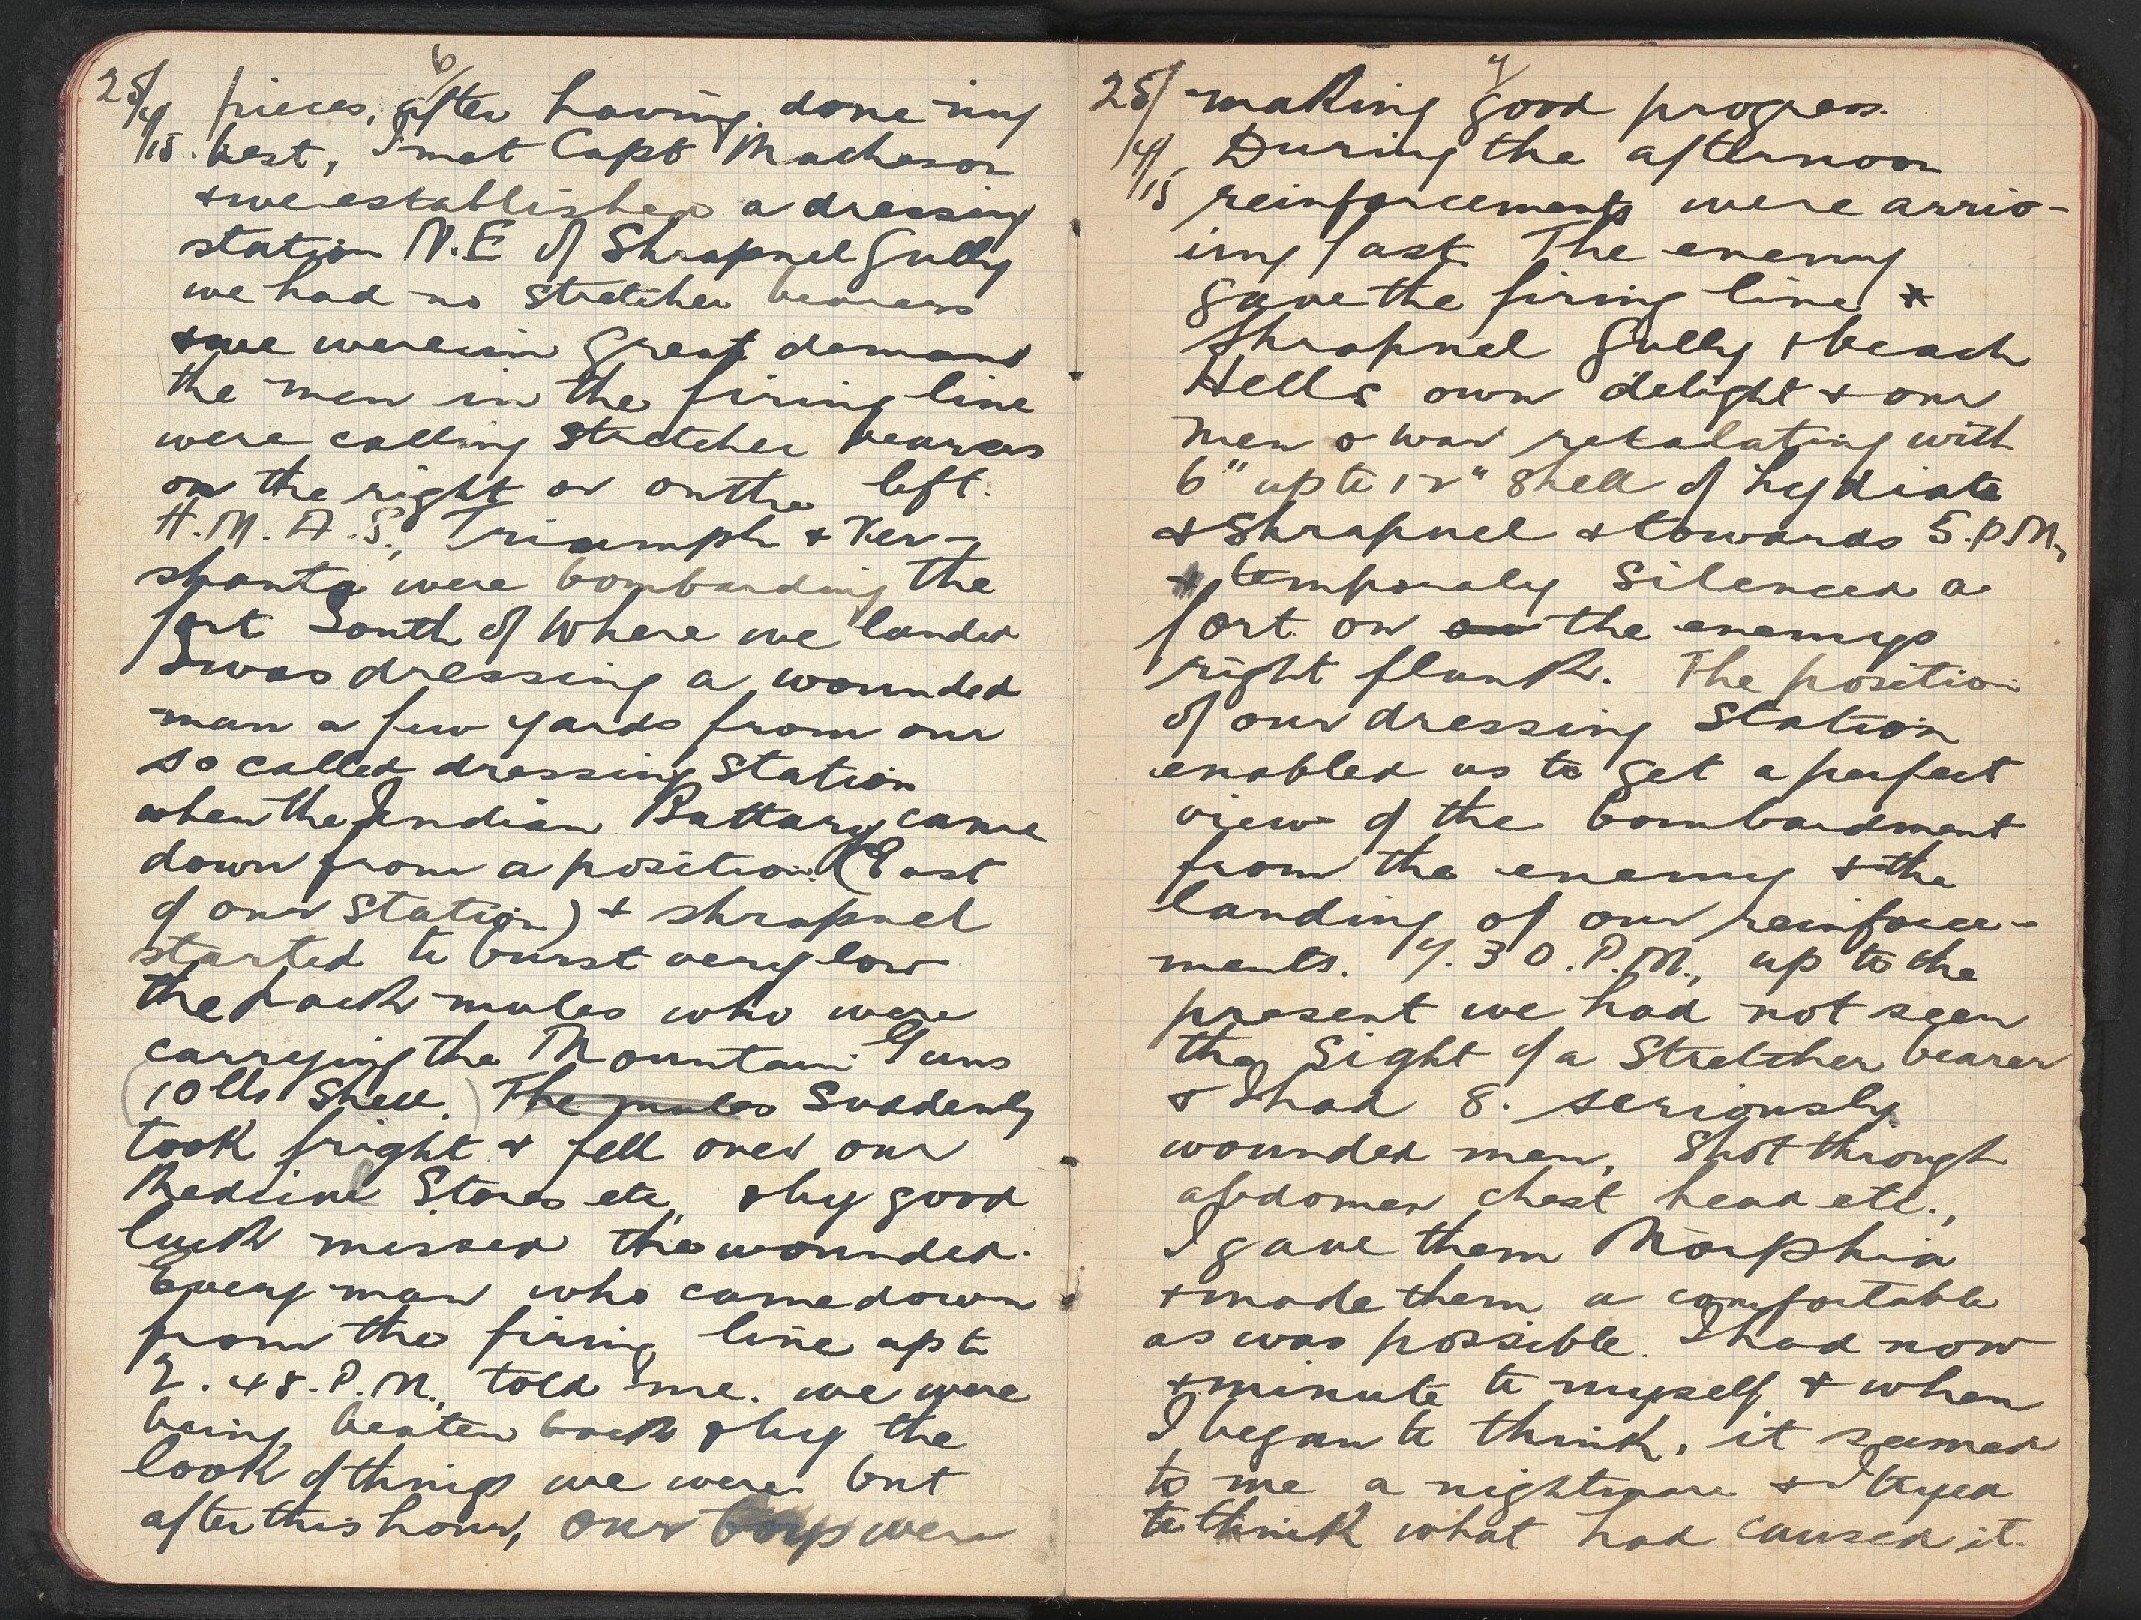 6/
25/4/15. pieces, after having done my
best, I met Capt Matheson
& we established a dressing
station N.E of Shrapnel Gully
we had no stretcher bearers
& we were in great demand
the men in the firing line
were calling stretcher bearers
on the right or on the left.
H.M.A.S., Triumph &
were bombarding the
fort South of where we landed
I was dressing a wounded
man a few yards from our
so called dressing station
when the Indian Battary came
down from a position (East
of our station) & shrapnel
started to burst very low
the pack mules who were
carrying the Mountain Guns
(10 lbs shell.) The mules suddenly
took fright & fell over our
Medicine Stores etc, & by good
luck missed the wounded.
Every man who came down
from the firing line up to
2.45.P.M., told me. we were
being beaten back & by the
look of things we were but
after this hour, our boys were
7/
25/4/15 making good progress.
During the afternoon
reinforcements were arriv-
ing fast. The enemy
gave the firing line &
Shrapnel Gully & beach
Hells own delight & our
men o war retalating with
6" up to 12" shell of lydiate
& shrapnel & towards 5.P.M.,
& temporaly silenced a
fort on on the enemys
right flank. The position
of our dressing station
enabled us to get a perfect
view of the bombardment
from the enemy & the
landing of our reinforce-
ments. 7.30.P.M., up to the
present we had not seen
the sight of a stretcher bearer
& I had 8. seriously
wounded men, shot through
abdomen chest head etc.,
I gave them Morphia
& made them a comfortable
as was possible. I had now
a minute to myself & when
I began to think, it seemed
to me a nightmare & I tryed
to think what had caused it.